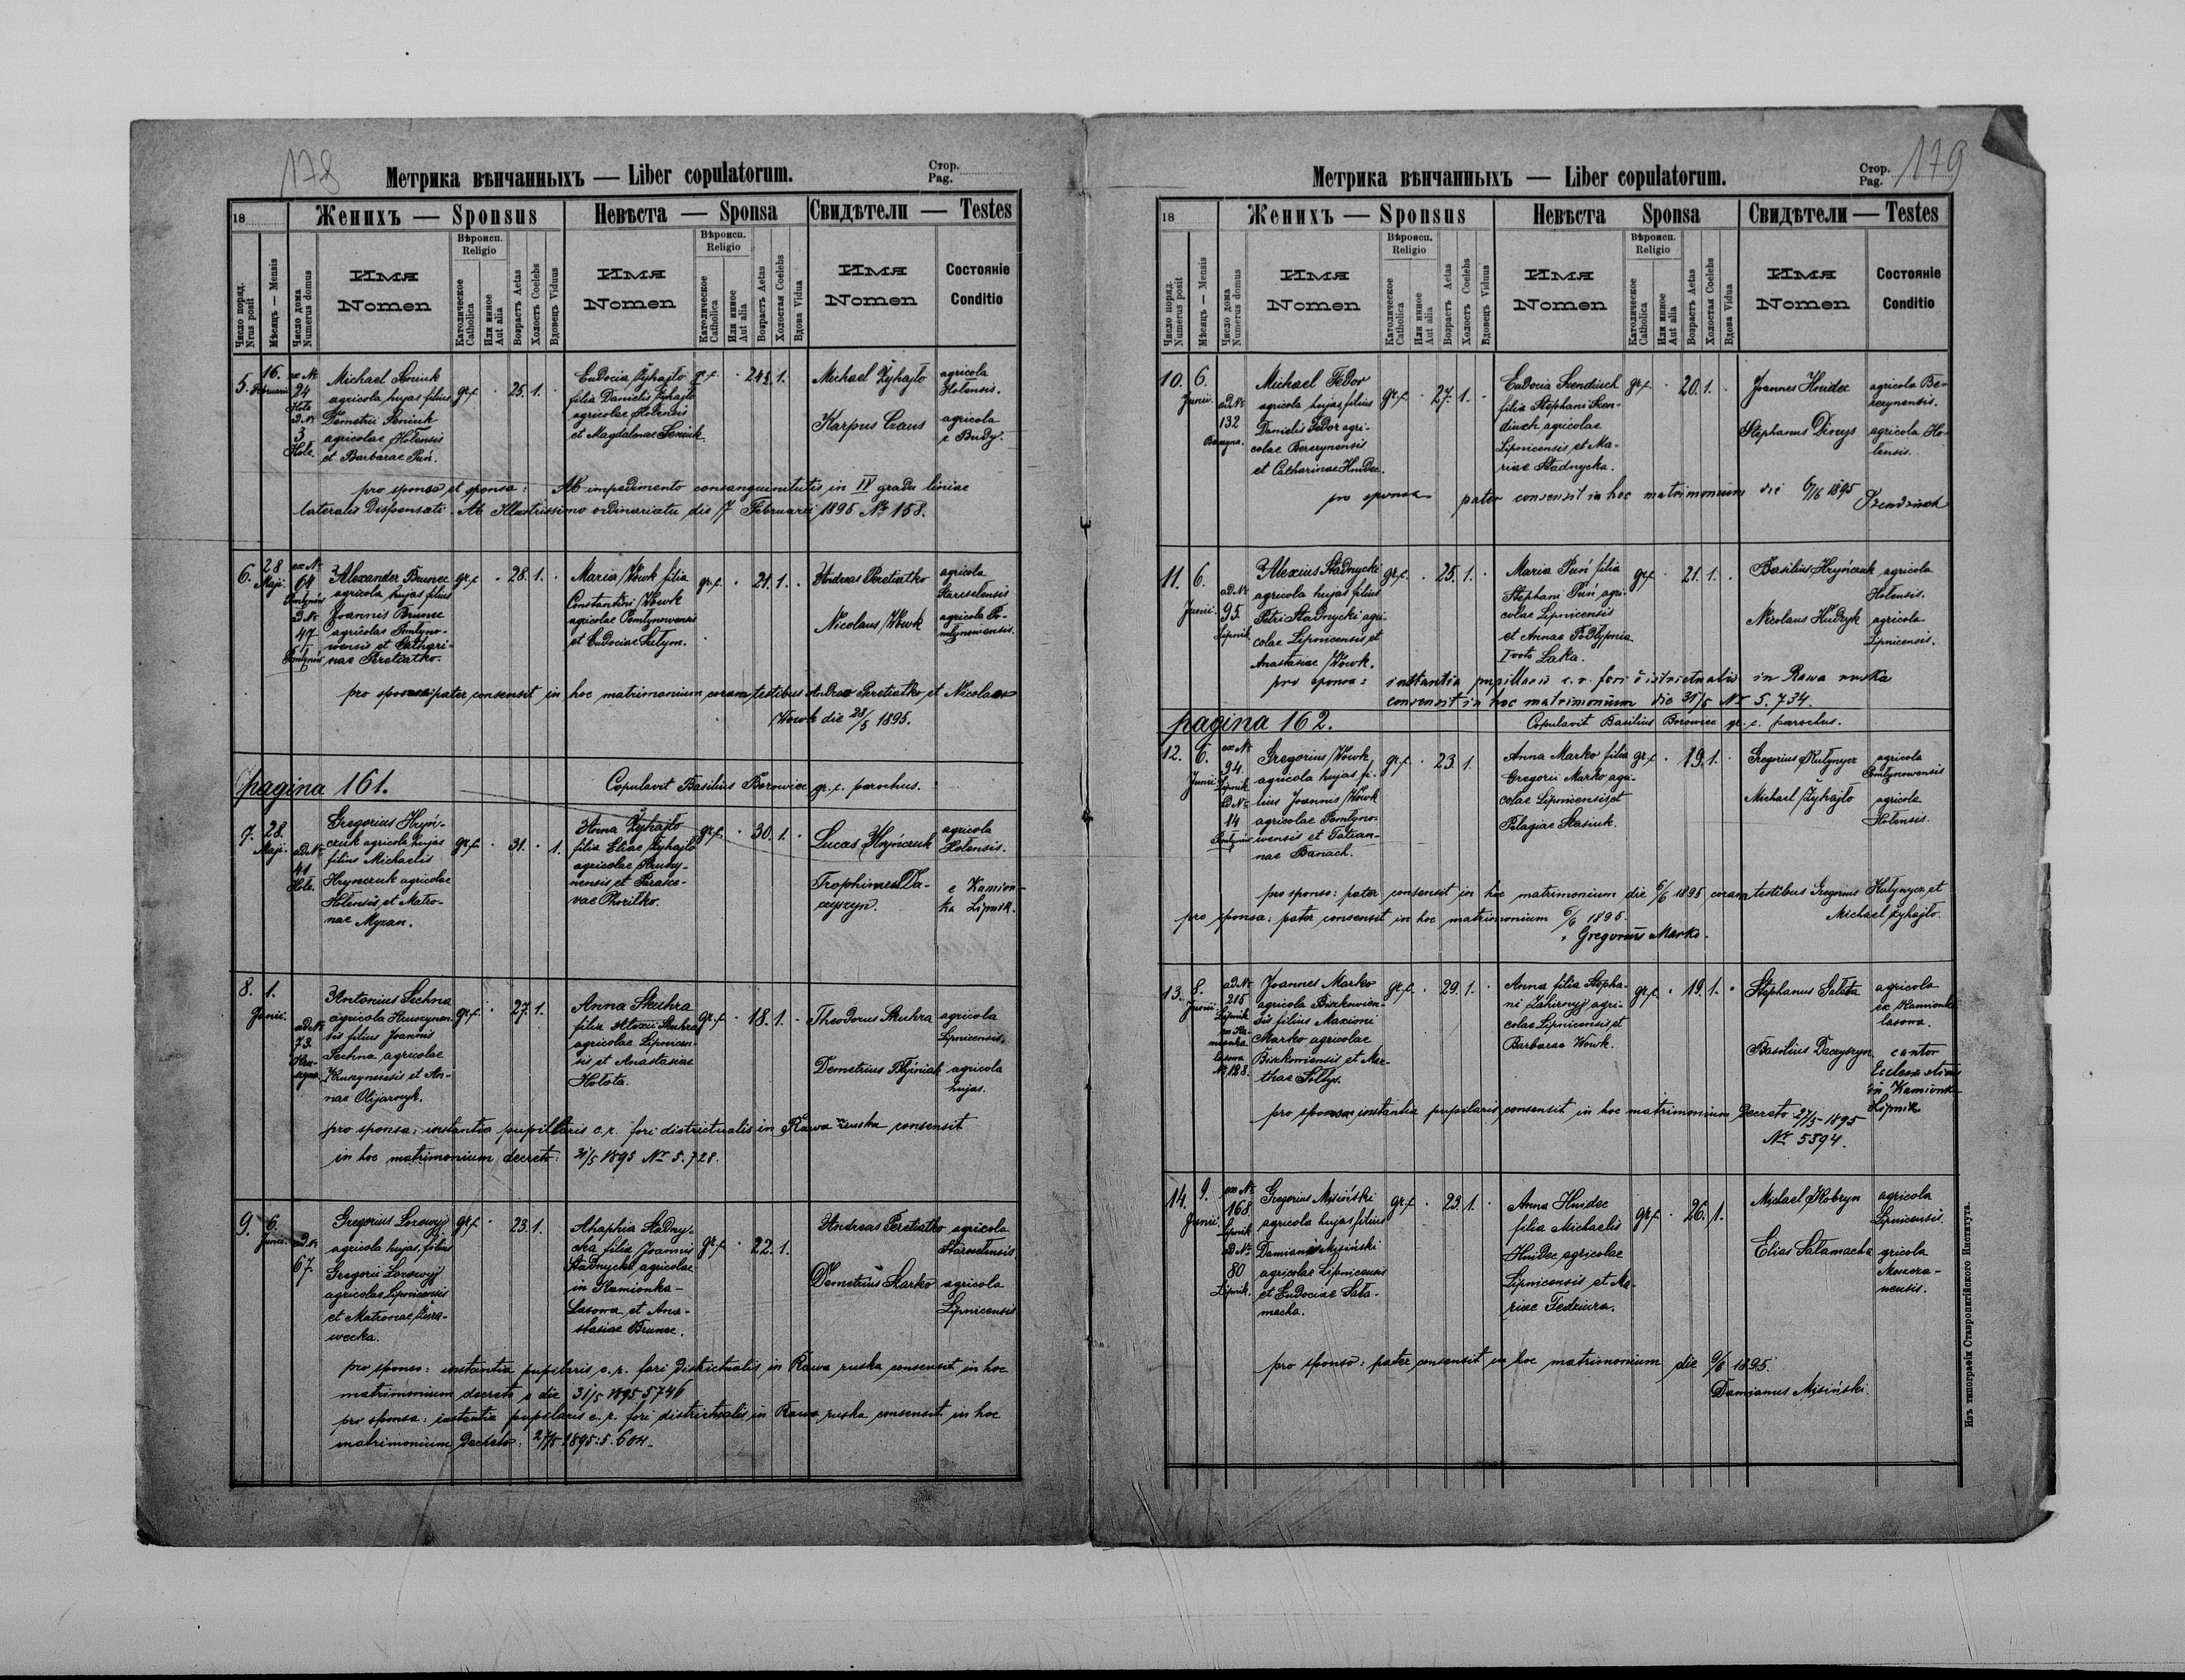 178
Метрика вѣнчанныхъ — Liber copulatorum.
Стор.
Pag.
18
Женихъ — Sponsus
Невѣста — Sponsa
Свидѣтели — Testes
Число поряд.
Nrus posit
Мѣсяцъ — Mensis
Число дома
Numerus domus
Имя
Nomen
Вѣроисп.
Religio
Католическое
Catholica
Или инное
Aut alia
Возрасть Aetas
Холость Coelebs
Вдовець Viduus
Имя
Nomen
Вѣроисп.
Religio
Католическое
Catholica
Или инное
Aut alia
Возрасть Aetas
Холостая Coelebs
Вдова Vidua
Имя
Nomen
Состоянie
Conditio
5.
16.
Februarii
ex №
24
Hole
ad №
3
Hole.
Michael Seniuk
agricola hujas filius
Demetrii Seniuk
agricolae Holensis
et Barbarae Puń.
gr. c. 25. 1.
Eudocia Żyhajło
filia Danielis Żyhajło
agricolae Holensis
et Magdalenae Seniuk.
gr. c. 24½. 1.
Michael Żyhajło
agricola
Holensis.
Karpus Czaus
agricola
e Budy.
pro sponso et sponsa: Ab impedimento consanguinitatis in IV gradu liniae
lateralis dispensati. Ab Illustrissimo ordinariatu die 7 Februarii 1895 № 158.
6.
28
Maji.
ex №
64
ad №
47
Alexander Brunec
agricola hujas filius
Joannis Brunec
agricolae Pomłyno-
wensis et Cathari-
nae Peretiatko.
gr. c. 28. 1.
Maria Wowk filia
Constantini Wowk
agricolae Pomłynowensis
et Eudociae Lutym.
gr. c. 21. 1.
Andreas Peretiatko
agricola
Staroselensis
Nicolaus Wowk
agricola Po-
młynowensis.
pro sponsa pater consensit in hoc matrimonium coram testibus Andrea Peretiatko et Nicolaus
Wowk die 28/5 1895.
pagina 161.
Copulavit Basilius Borowiec gr. c. parochus.
7.
28.
Maji.
ad №
41
Hole.
Gregorius Hryń-
czuk agricola hujas
filius Michaelis
Hrynczuk agricolae
Holensis, et Matro-
nae Myzan.
gr. c. 31. 1.
Anna Żyhajło
filia Eliae Żyhajło
agricolae Kruszy-
nensis et Parasce-
vae Chorilko.
gr. c. 30. 1.
Lucas Hryńczuk
agricola
Holensis.
Trophimus Da-
czyszyn.
e Kamion-
ka Lipnik.
8.
1.
Junii.
ad №
73.
Kru-
szyna.
Antonius Sechna
agricola Kruszynen
sis filius Joannis
Sechna agricolae
Kruszynensis et An-
nae Olijarnyk.
gr. c. 27. 1.
Anna Skuhra
filia Alexii Skuhra
agricolae Lipnicen-
sis et Anastasiae
Hołota.
gr. c. 18. 1.
Theodorus Skuhra
agricola
Lipnicensis.
Demetrius
agricola
hujas.
pro sponsa: instantia pupillaris c. r. fori districtualis in Rawa ruska consensit
in hoc matrimonium decreto: 31/5 1895 № 5.728.
9.
6.
Junii.
ad №
67.
Gregorius Lozowyj
agricola hujas, filius
Gregorii Lozowyj
agricolae Lipnicensis
et Matronae Żura-
wecka.
gr. c. 23. 1.
Ahaphia Stadny-
cka filia Joannis
Stadnycki agricolae
in Kamionka-
Lasowa et Ana-
stasiae Brunec.
gr. c. 22. 1.
Andreas Peretiatko
agricola
Staroselensis
Demetrius Skarko
agricola
Lipnicensis
pro sponso: instantia pupilaris c. r. fori districtualis in Rawa ruska consensit in hoc
matrimonium decreto a die 31/5 1895 5746
pro sponsa: instantia pupilaris c. r. fori districtualis in Rawa ruska consensit in hoc
matrimonium Decreto: 27/5 1895: 5.604.
179
Метрика вѣнчанныхъ — Liber copulatorum.
Стор.
Pag.
18
Женихъ — Sponsus
Невѣста Sponsa
Свидѣтели — Testes
Число поряд.
Numerus posit
Мѣсяцъ — Mensis
Число дома
Numerus domus
Имя
Nomen
Вѣроисп.
Religio
Католическое
Catholica
Или инное
Aut alia
Возрасть Aetas
Холость Coelebs
Вдовець Viduus
Имя
Nomen
Вѣроисп.
Religio
Католическое
Catholica
Или инное
Aut alia
Возрасть Aetas
Холостая Coelebs
Вдова Vidua
Имя
Nomen
Состоянie
Conditio
10.
6.
Junii.
ad №
132
Michael Fedor
agricola hujas filius
Danielis Fedor agri-
colae Berezynensis
et Catharinae Hnidec.
gr. c. 27. 1.
Eudocia Szendiuch
filia Stephani Szen-
diuch agricolae
Lipnicensis, et Ma-
riae Stadnycka.
gr. c. 20. 1.
Joannes Hnidec
agricola Be-
rezynensis.
Stephanus Dinys
agricola Ho-
lensis.
pro sponsa pater consensit in hoc matrimonium die 6/6 1895
Szendziuch
11.
6.
Junii.
ad №
95.
Lipnik
Alexius Stadnycki
agricola hujas filius
Petri Stadnycki agri-
colae Lipnicensis et
Anastasiae Wowk.
gr. c. 25. 1.
Maria Puń filia
Stephani Puń agri-
colae Lipnicensis
et Annae Podłypnia
I voto Laka.
gr. c. 21. 1.
Basilius Hryńczuk
agricola
Holensis.
Nicolaus Kudryk
agricola
Lipnicensis.
pro sponsa: instantia pupillaris c. r. fori districtualis in Rawa ruska
consensit in hoc matrimonium die 31/5 № 5.734.
pagina 162.
Copulavit Basilius Borowiec gr. c. parochus.
12.
6.
Junii.
ex №
94.
Lipnik
ad №
14
Gregorius Wowk
agricola hujas fi-
lius Joannis Wowk
agricolae Pomłyno-
wensis et Tatian-
nae Banach.
gr. c. 23. 1.
Anna Marko filia
Gregorii Marko agri-
colae Lipnicensis et
Pelagiae Stasiuk.
gr. c. 19. 1.
Gregorius Kułynycz
agricola
Pomłynowensis
Michael Żyhajło
agricola
Holensis.
pro sponso: pater consensit in hoc matrimonium die 6/6 1895 coram testibus Gregorius Kułynycz et
Michael Żyhajło.
pro sponsa: pater consensit in hoc matrimonium 6/6 1895.
Gregorius Marko.
13.
8.
Junii.
ad №
215
Lipnik
ex Ka-
mionka
lasowa
№ 128.
Joannes Marko
agricola Biszkowien-
sis filius Maximi
Marko agricolae
Biszkowiensis et Mar-
thae Sołtys.
gr. c. 29. 1.
Anna filia Stepha-
ni Zahirnyj agri-
colae Lipnicensis et
Barbarae Wowk.
gr. c. 19. 1.
Stephanus Sałata
agricola
ex Kamionka
lasowa.
Basilius Daczyszyn
cantor
in Kamionka
Lipnik
pro sponsa: instantia pupilaris consensit in hoc matrimonium Decreto 27/5 1895
№ 5394.
14.
9.
Junii.
ex №
168
Lipnik
ad №
80
Lipnik.
Gregorius Misiński
agricola hujas filius
Damiani Misiński
agricolae Lipnicensis
et Eudociae Sała-
macha.
gr. c. 23. 1.
Anna Hnidec
filia Michaelis
Hnidec agricolae
Lipnicensis et Ma-
riae Fedziura.
gr. c. 26. 1.
Michael Kobryn
agricola
Lipnicensis.
Elias Sałamacha
gricola
Moszcza-
nensis.
pro sponso: pater consensit in hoc matrimonium die 9/6 1895.
Damianus Misiński.
Изъ типографiи Ставропигiйского Института.